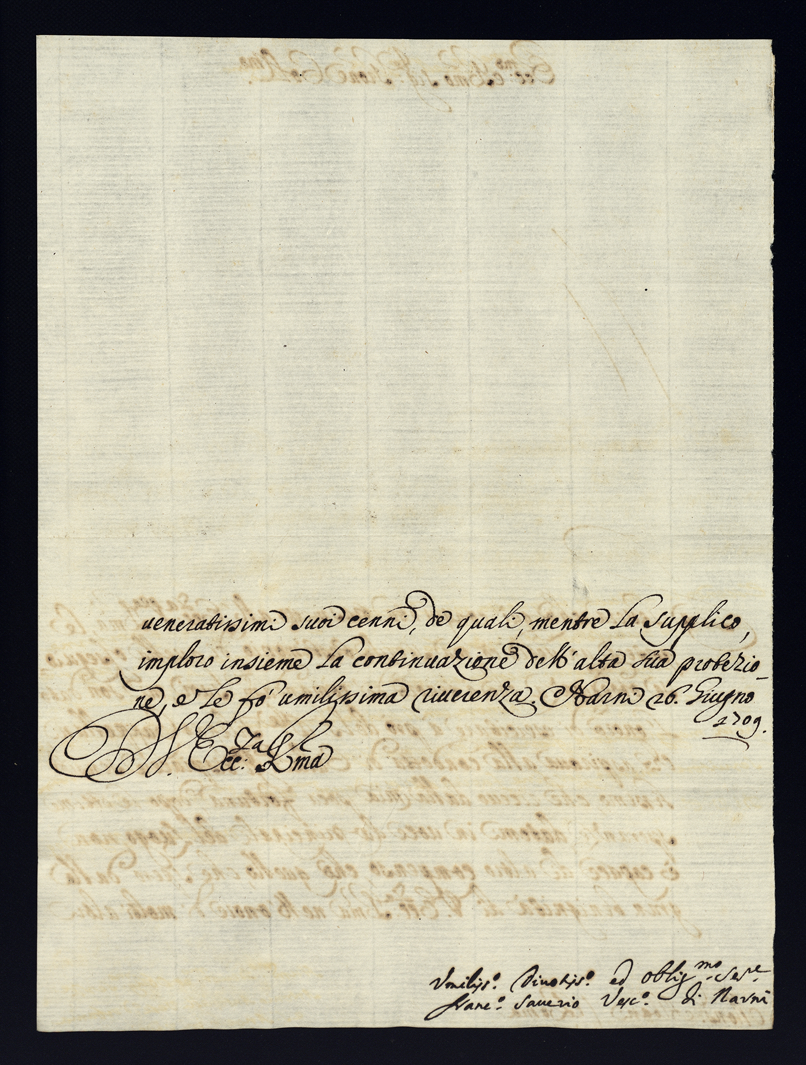 veneratissimi suoi cenni, de quali, mentre la supplico,
imploro insieme la continuazione dell' alta sua protezio-
ne, e le fò umilissima riverenza. Narni 26. Giugno
1709.
D. V. Ecc:za Ill.ma
Umiliss.o Divotiss.o ed oblig.mo Ser.re
Franc.o Saverio Vesc.o di Narni